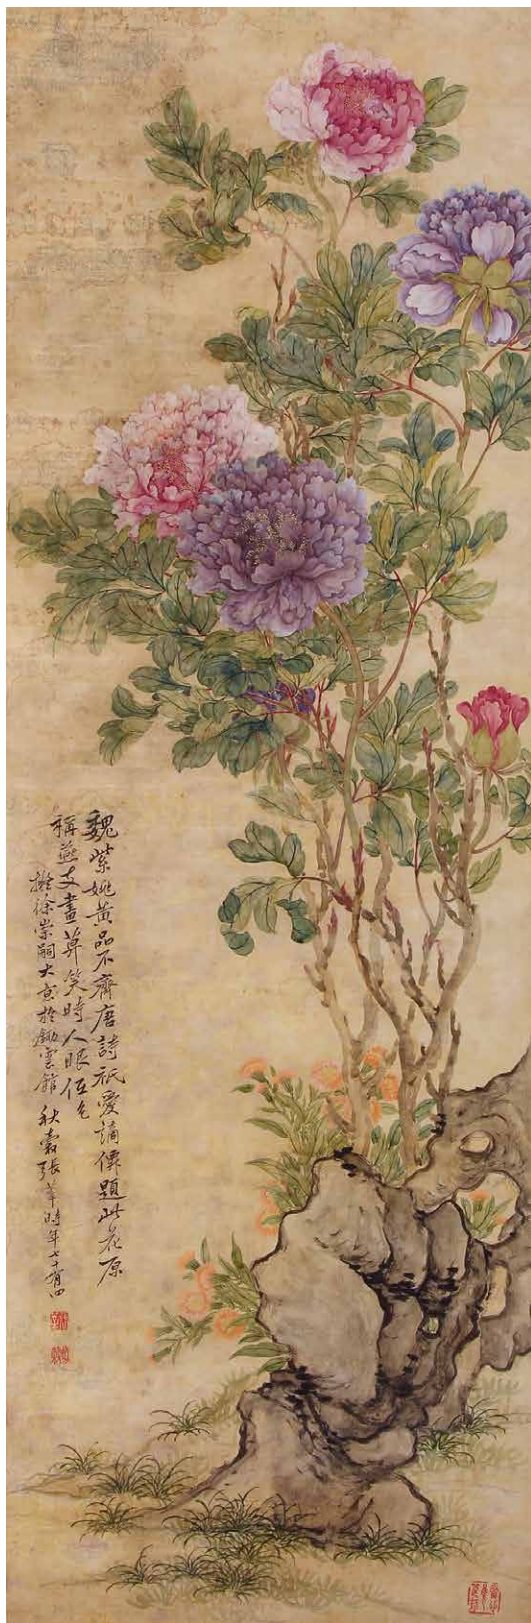 魏紫姚黃品不齊唐詩祇愛謫僊題此花原
稱燕支畫莫笑時人眼低
擬徐崇嗣大意於鋤雲館 秋穀張莘時年七十有四